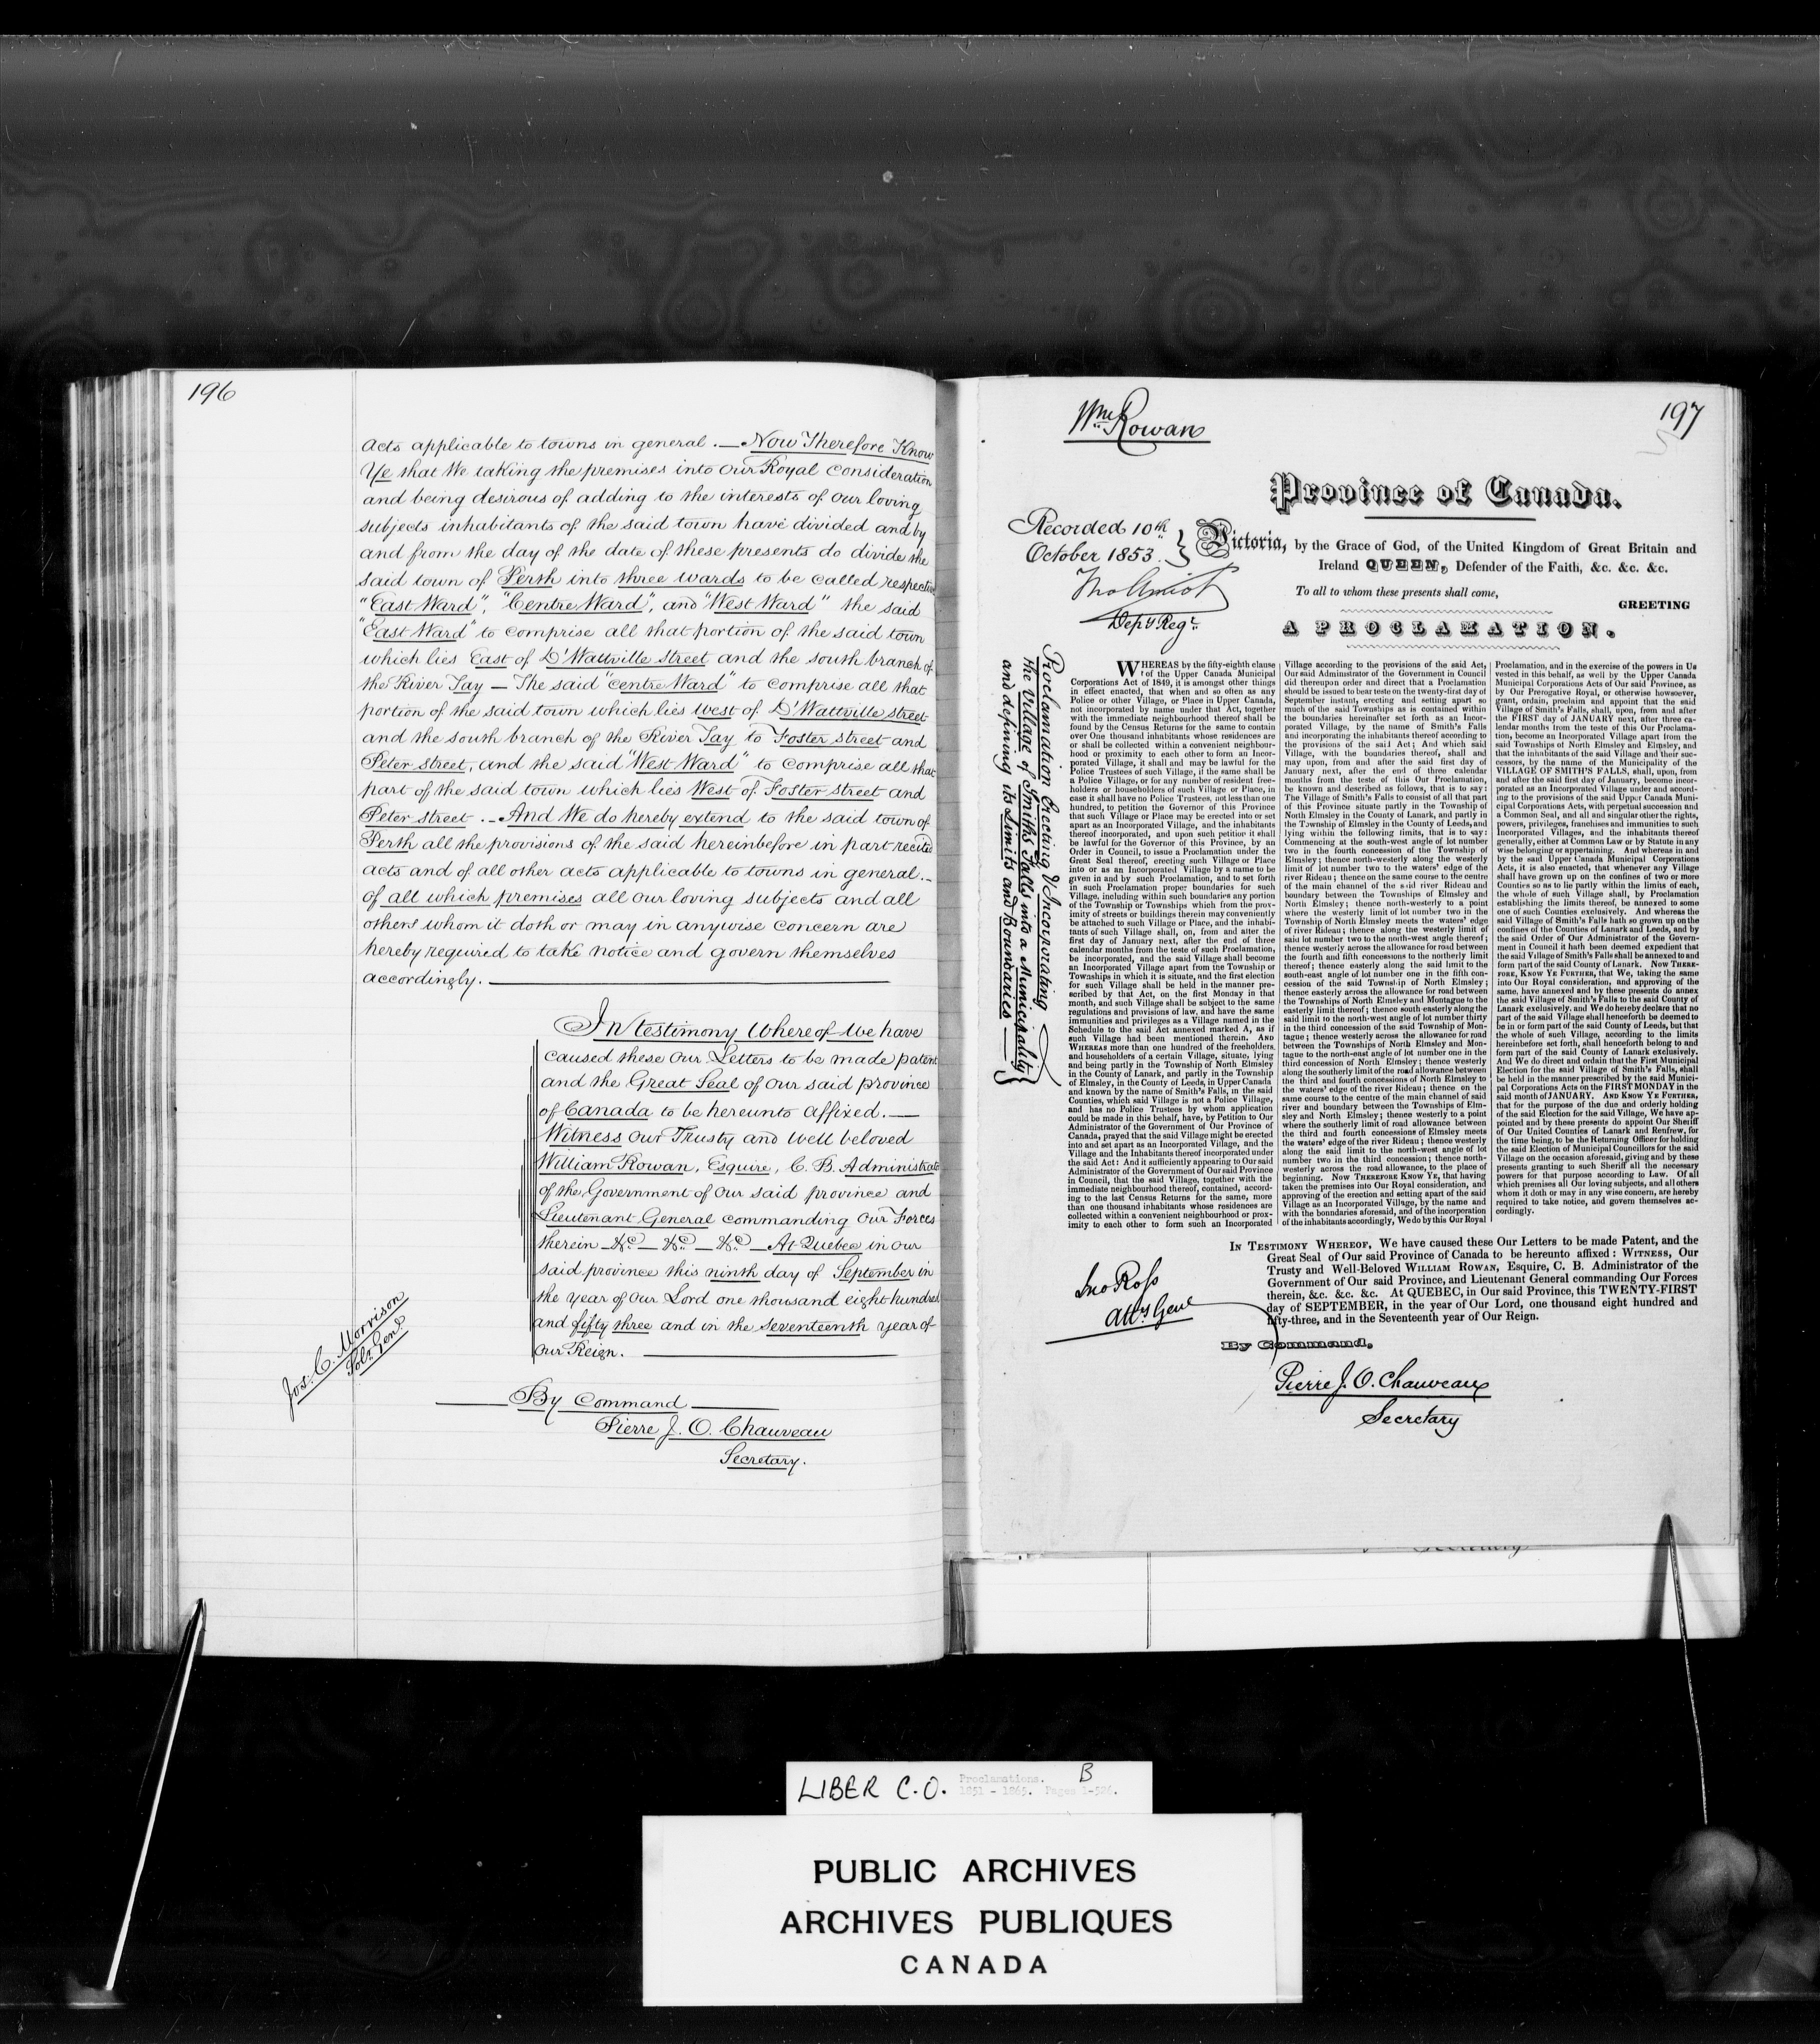 196
acts applicable to towns in general. — Now Therefore Know
Ye that We taking the premises into Our Royal consideration
and being desirous of adding to the interests of our loving
subjects inhabitants of the said town have divided and by
and from the day of the date of these presents do divide the
said town of Perth into three wards to be called respective
"East Ward", "Centre Ward", and "West Ward" the said
"East Ward" to comprise all that portion of the said town
which lies East of D'Wattville street and the south branch of
the River Tay — The said "Centre Ward" to comprise all that
portion of the said town which lies west of D'Wattville street
and the south branch of the River Tay to Foster street and
Peter street, and the said "West Ward" to comprise all that
part of the said town which lies West of Foster street and
Peter street. — And We do hereby extend to the said town of
Perth all the provisions of the said hereinbefore in part recited
acts and of all other acts applicable to towns in general. —
of all which premises all our loving subjects and all
others whom it doth or may in anywise concern are
hereby required to take notice and govern themselves
accordingly.
In testimony Whereof We have
caused these Our Letters to be made patent
and the Great Seal of Our said province
of Canada to be hereunto affixed. —
Witness Our Trusty and well beloved
William Rowan, Esquire, C. B. Administrat
of the Government of Our said province and
Lieutenant General commanding Our Forces
therein &c — &c — &c — At Quebec in our
said province this ninth day of September in
the year of Our Lord one thousand eight hundred
and fifty three and in the seventeenth year of
Our Reign.
Jos: C. Morrison
Solr Genl
By Command
Pierre J. O. Chauveau
Secretary.
197
Wm Rowan
Province of Canada.
Recorded 10th
October 1853.
Depy Regr
Victoria, by the Grace of God, of the United Kingdom of Great Britain and
Ireland QUEEN, Defender of the Faith, &c. &c. &c.
To all to whom these presents shall come,
GREETING
A PROCLAMATION.
Proclamation Erecting & Incorporating
the Village of Smiths Falls into a Municipality
and defining its Limits and Boundaries
WHEREAS by the fifty-eighth clause
of the Upper Canada Municipal
Corporations Act of 1849, it is amongst other things
in effect enacted, that when and so often as any
Police or other Village, or Place in Upper Canada,
not incorporated by name under that Act, together
with the immediate neighbourhood thereof shall be
found by the Census Returns for the same to contain
over One thousand inhabitants whose residences are
or shall be collected within a convenient neighbour-
hood or proximity to each other to form an Incor-
porated Village, it shall and may be lawful for the
Police Trustees of such Village, if the same shall be
a Police Village, or for any number of resident free-
holders or householders of such Village or Place, in
case it shall have no Police Trustees, not less than one
hundred, to petition the Governor of this Province
that such Village or Place may be erected into or set
apart as an Incorporated Village, and the inhabitants
thereof incorporated, and upon such petition it shall
be lawful for the Governor of this Province, by an
Order in Council, to issue a Proclamation under the
Great Seal thereof, erecting such Village or Place
into or as an Incorporated Village by a name to be
given in and by such Proclamation, and to set forth
in such Proclamation proper boundaries for such
Village, including within such boundaries any portion
of the Township or Townships which from the prox-
imity of streets or buildings therein may conveniently
be attached to such Village or Place, and the inhabi-
tants of such Village shall, on, from and after the
first day of January next, after the end of three
calendar months from the teste of such Proclamation,
be incorporated, and the said Village shall become
an Incorporated Village apart from the Township or
Townships in which it is situate, and the first election
for such Village shall be held in the manner pre-
scribed by that Act, on the first Monday in that
month, and such Village shall be subject to the same
regulations and provisions of law, and have the same
immunities and privileges as a Village named in the
Schedule to the said Act annexed marked A, as if
such Village had been mentioned therein. AND
WHEREAS more than one hundred of the freeholders,
and householders of a certain Village, situate, lying
and being partly in the Township of North Elmsley
in the County of Lanark, and partly in the Township
of Elmsley, in the County of Leeds, in Upper Canada
and known by the name of Smith's Falls, in the said
Counties, which said Village is not a Police Village,
and has no Police Trustees by whom application
could be made in this behalf, have, by Petition to Our
Administrator of the Government of Our Province of
Canada, prayed that the said Village might be erected
into and set apart as an Incorporated Village, and the
Village and the Inhabitants thereof incorporated under
the said Act: And it sufficiently appearing to Our said
Administrator of the Government of Our said Province
in Council, that the said Village, together with the
immediate neighbourhood thereof, contained, accord-
ing to the last Census Returns for the same, more
than one thousand inhabitants whose residences are
collected within a convenient neighbourhood or prox-
imity to each other to form such an Incorporated
Village according to the provisions of the said Act,
Our said Administrator of the Government in Council
did thereupon order and direct that a Proclamation
should be issued to bear teste on the twenty-first day of
September instant, erecting and setting apart so
much of the said Townships as is contained within
the boundaries hereinafter set forth as an Incor-
porated Village, by the name of Smith's Falls
and incorporating the inhabitants thereof according to
the provisions of the said Act; And which said
Village, with the boundaries thereof, shall and
may upon, from and after the said first day of
January next, after the end of three calendar
months from the teste of this Our Proclamation,
be known and described as follows, that is to say:
The Village of Smith's Falls to consist of all that part
of this Province situate partly in the Township of
North Elmsley in the County of Lanark, and partly in
the Township of Elmsley in the County of Leeds, and
lying within the following limits, that is to say:
Commencing at the south-west angle of lot number
two in the fourth concession of the Township of
Elmsley; thence north-westerly along the westerly
limit of lot number two to the waters' edge of the
river Rideau; thence on the same course to the centre
of the main channel of the said river Rideau and
boundary between the Townships of Elmsley and
North Elmsley; thence north-westerly to a point
where the westerly limit of lot number two in the
Township of North Elmsley meets the waters' edge
of river Rideau; thence along the westerly limit of
said lot number two to the north-west angle thereof;
thence westerly across the allowance for road between
the fourth and fifth concessions to the northerly limit
thereof; thence easterly along the said limit to the
south-east angle of lot number one in the fifth con-
cession of the said Township of North Elmsley;
thence easterly across the allowance for road between
the Townships of North Elmsley and Montague to the
easterly limit thereof; thence south-easterly along the
said limit to the north-west angle of lot number thirty
in the third concession of the said Township of Mon-
tague; thence westerly across the allowance for road
between the Townships of North Elmsley and Mon-
tague to the north-east angle of lot number one in the
third concession of North Elmsley; thence westerly
along the southerly limit of the road allowance between
the third and fourth concessions of North Elmsley to
the waters' edge of the river Rideau; thence on the
same course to the centre of the main channel of said
river and boundary between the Townships of Elm-
sley and North Elmsley; thence westerly to a point
where the southerly limit of road allowance between
the third and fourth concessions of Elmsley meets
the waters' edge of the river Rideau; thence westerly
along the said limit to the north-west angle of lot
number two in the third concession; thence north-
westerly across the road allowance, to the place of
beginning. NOW THEREFORE KNOW YE, that having
taken the premises into Our Royal consideration, and
approving of the erection and setting apart of the said
Village as an Incorporated Village, by the name and
with the boundaries aforesaid, and of the incorporation
of the inhabitants accordingly, We do by this Our Royal
Proclamation, and in the exercise of the powers in Us
vested in this behalf, as well by the Upper Canada
Municipal Corporations Acts of Our said Province, as
by Our Prerogative Royal, or otherwise howsoever,
grant, ordain, proclaim and appoint that the said
Village of Smith's Falls, shall, upon, from and after
the FIRST day of JANUARY next, after three ca-
lendar months from the teste of this Our Proclama-
tion, become an Incorporated Village apart from the
said Townships of North Elmsley and Elmsley, and
that the inhabitants of the said Village and their suc-
cessors, by the name of the Municipality of the
VILLAGE OF SMITH'S FALLS, shall, upon, from
and after the said first day of January, become incor-
porated as an Incorporated Village under and accord-
ing to the provisions of the said Upper Canada Muni-
cipal Corporations Acts, with perpetual succession and
a Common Seal, and all and singular other the rights,
powers, privileges, franchises and immunities to such
Incorporated Villages, and the inhabitants thereof
generally, either at Common Law or by Statute in any
wise belonging or appertaining. And whereas in and
by the said Upper Canada Municipal Corporations
Acts, it is also enacted, that whenever any Village
shall have grown up on the confines of two or more
Counties so as to lie partly within the limits of each,
the whole of such Village shall, by Proclamation
establishing the limits thereof, be annexed to some
one of such Counties exclusively. And whereas the
said Village of Smith's Falls hath so grown up on the
confines of the Counties of Lanark and Leeds, and by
the said Order of Our Administrator of the Govern-
ment in Council it hath been deemed expedient that
the said Village of Smith's Falls shall be annexed to and
form part of the said County of Lanark. NOW THERE-
FORE, KNOW YE FURTHER, that We, taking the same
into Our Royal consideration, and approving of the
same, have annexed and by these presents do annex
the said Village of Smith's Falls to the said County of
Lanark exclusively, and We do hereby declare that no
part of the said Village shall henceforth be deemed to
be in or form part of the said County of Leeds, but that
the whole of such Village, according to the limits
hereinbefore set forth, shall henceforth belong to and
form part of the said County of Lanark exclusively.
And We do direct and ordain that the First Municipal
Election for the said Village of Smith's Falls, shall
be held in the manner prescribed by the said Munici-
pal Corporations Acts on the FIRST MONDAY in the
said month of JANUARY. AND KNOW YE FURTHER,
that for the purpose of the due and orderly holding
of the said Election for the said Village, We have ap-
pointed and by these presents do appoint Our Sheriff
of Our United Counties of Lanark and Renfrew, for
the time being, to be the Returning Officer for holding
the said Election of Municipal Councillors for the said
Village on the occasion aforesaid, giving and by these
presents granting to such Sheriff all the necessary
powers for that purpose according to Law. Of all
which premises all Our loving subjects, and all others
whom it doth or may in any wise concern, are hereby
required to take notice, and govern themselves ac-
cordingly.
IN TESTIMONY WHEREOF, We have caused these Our Letters to be made Patent, and the
Great Seal of Our said Province of Canada to be hereunto affixed: WITNESS, Our
Trusty and Well-Beloved WILLIAM ROWAN, Esquire, C. B. Administrator of the
Government of Our said Province, and Lieutenant General commanding Our Forces
therein, &c. &c. &c. At QUEBEC, in Our said Province, this TWENTY-FIRST
day of SEPTEMBER, in the year of Our Lord, one thousand eight hundred and
fifty-three, and in the Seventeenth year of Our Reign.
Jno Ross
Atty Genl
By Command,
Pierre J. O. Chauveau
Secretary
LIBER C.O. Proclamations. B
1851 - 1865. Pages 1-526.
PUBLIC ARCHIVES
ARCHIVES PUBLIQUES
CANADA